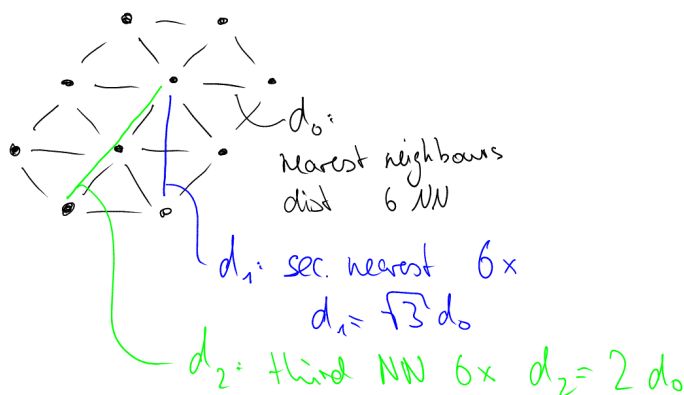 d₀:
nearest neighbours
dist 6 NN
d₁: sec. nearest 6x
d₁= √3 d₀
d₂: third NN 6x d₂ = 2 d₀